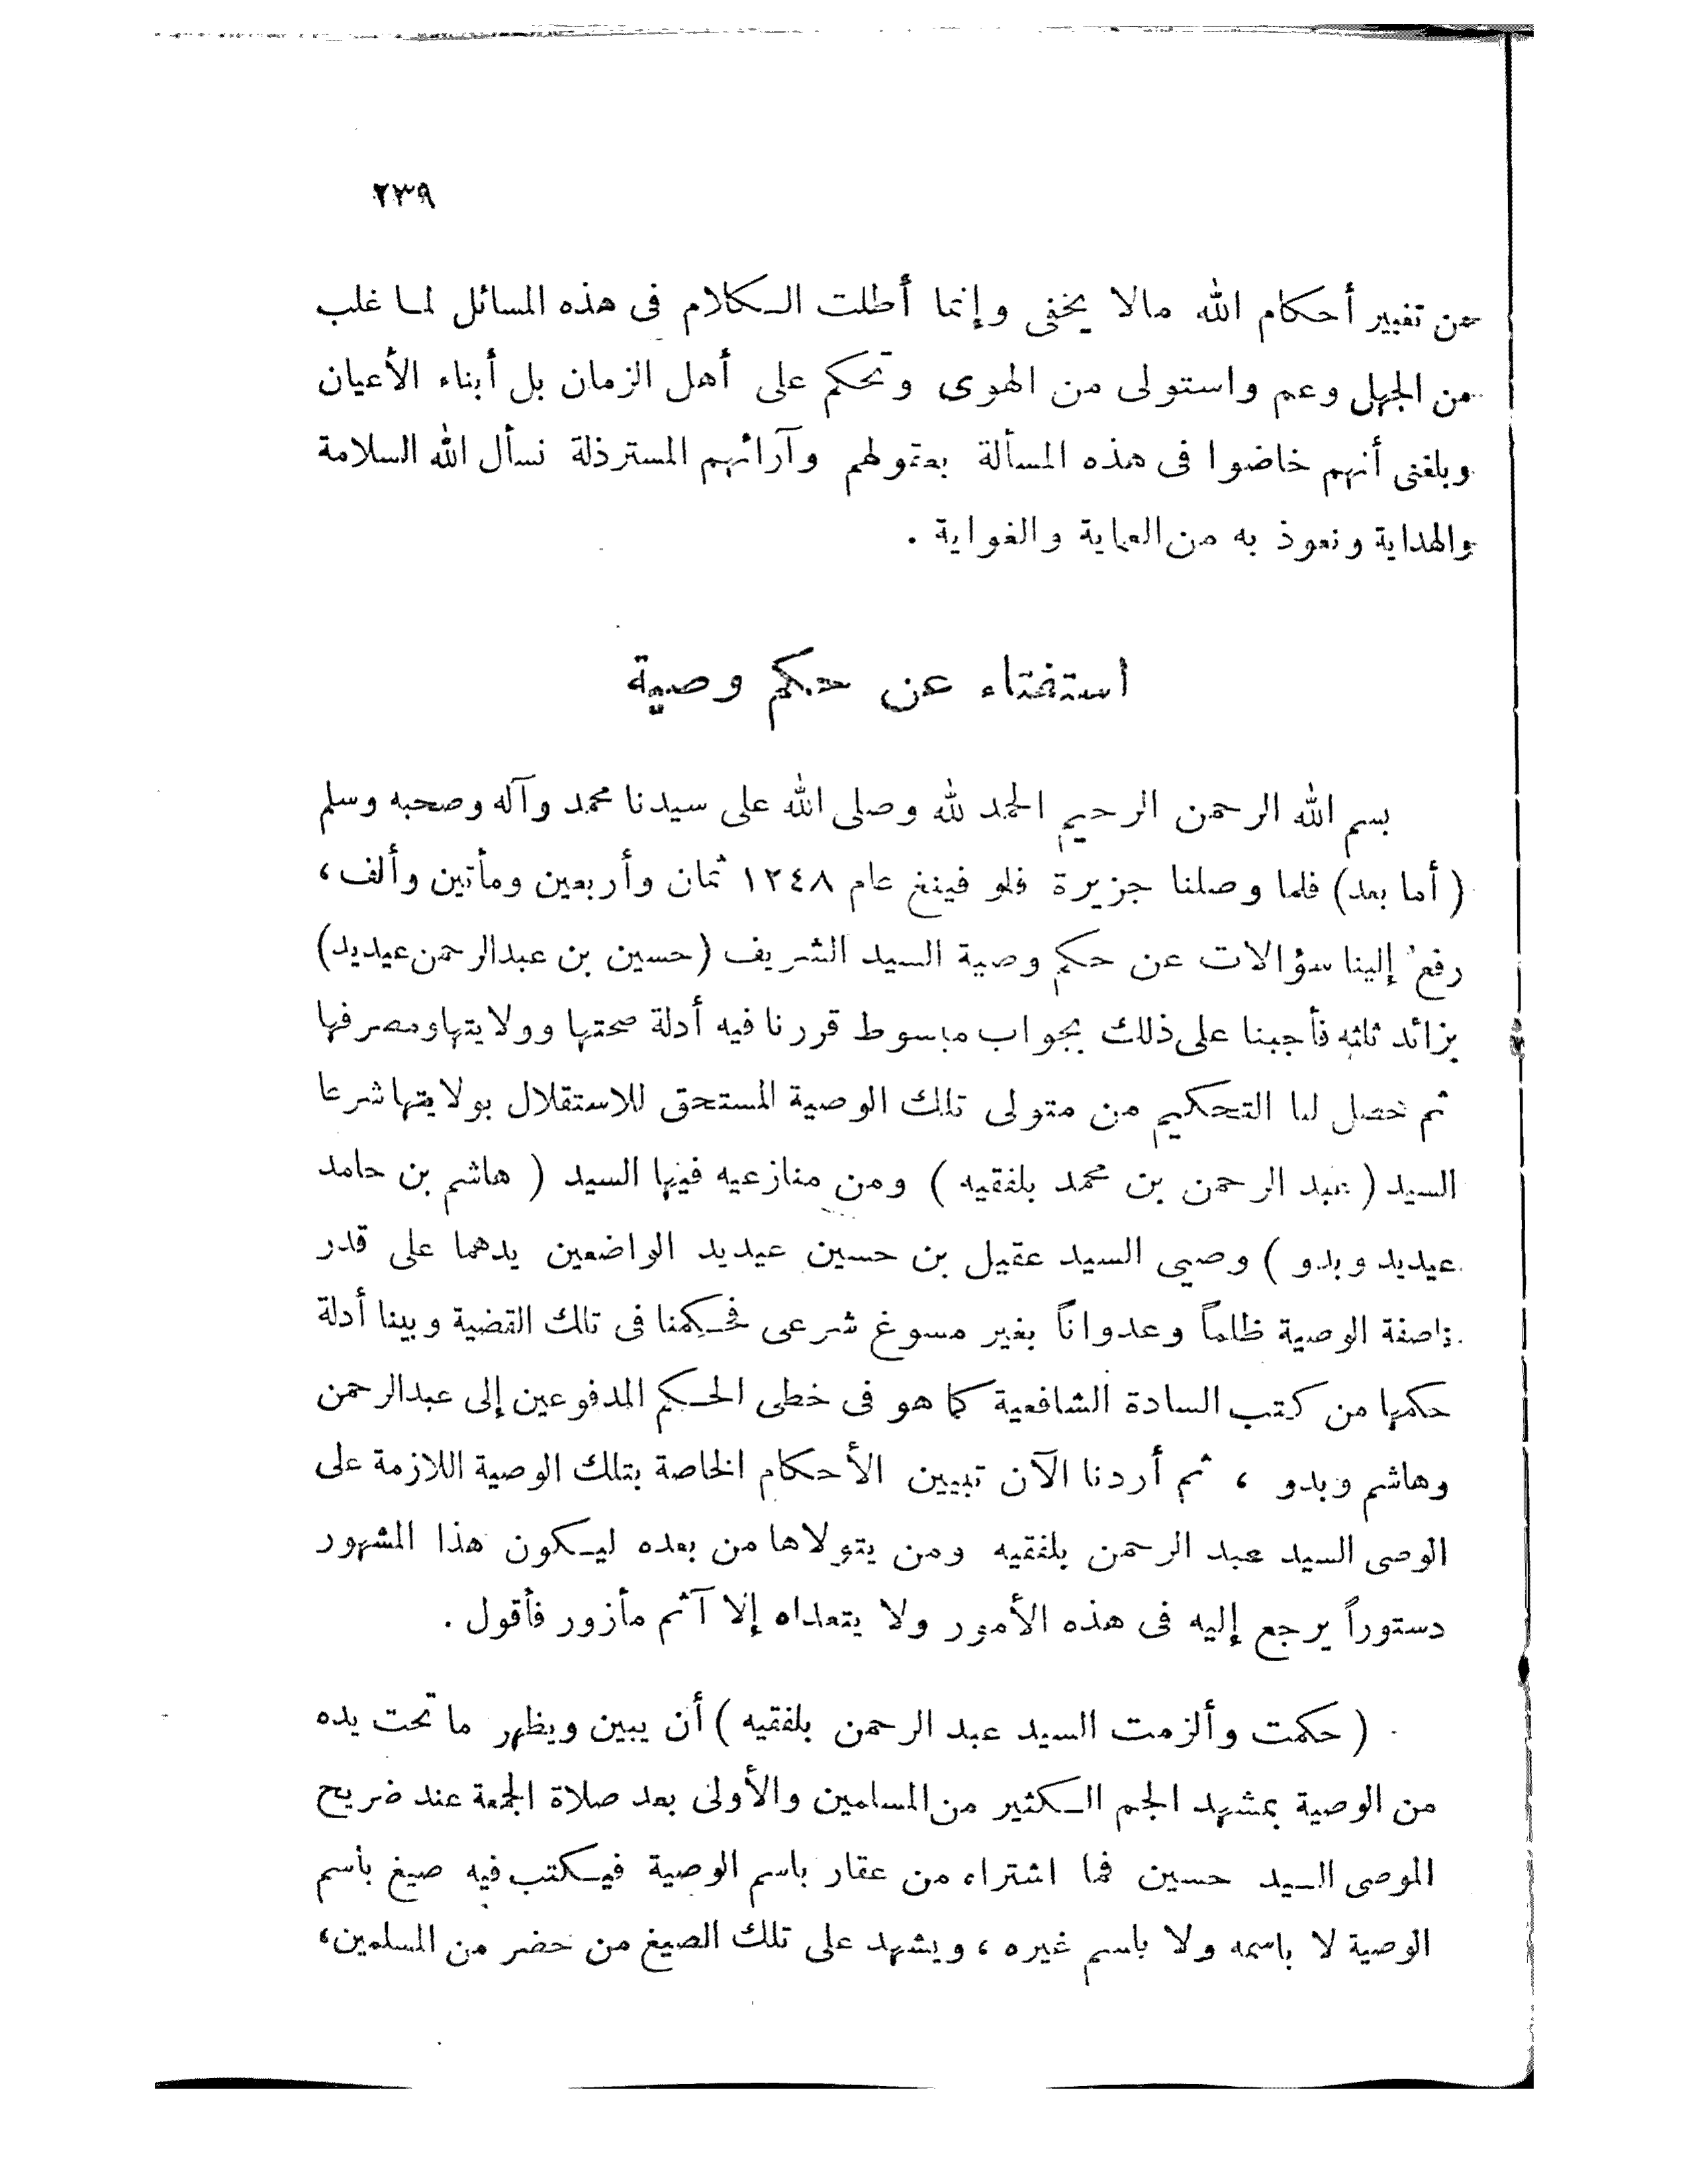 ٢٣٩
من تغيير أحكام الله مالا يخفى وإنما أطلت الكلام فى هذه المسائل لما غلب
من الجهل وعم واستولى من الهوى وتحكم على أهل الزمان بل أبناء الأعيان
وبلغنى أنهم خاضوا فى هذه المسألة بعقولهم وآرائهم المسترذلة نسأل الله السلامة
والهداية ونعوذ به من العماية والغواية .
استفتاء عن حكم وصية
بسم الله الرحمن الرحيم الحمد لله وصلى الله على سيدنا محمد وآله وصحبه وسلم
( أما بعد) فلما وصلنا جزيرة فلو فينغ عام ١٢٤٨ ثمان وأربعين ومأتين وألف،
رفع إلينا سؤالات عن حكم وصية السيد الشريف (حسين بن عبدالرحمن عيديد)
بزائد ثلثه فأجبنا على ذلك بجواب مبسوط قررنا فيه أدلة صحتها وولايتها ومصرفها
ثم حصل لنا التحكيم من متولى تلك الوصية المستحق للاستقلال بولايتها شرعا
السيد ( عبد الرحمن بن محمد بلفقيه ) ومن منازعيه فيها السيد ( هاشم بن حامد
عيديد وبدو ) وصيى السيد عقيل بن حسين عيديد الواضعين يدهما على قدر
ناصفة الوصية ظلماً وعدواناً بغير مسوغ شرعى فحكمنا فى تلك القضية وبينا أدلة
حكمها من كتب السادة الشافعية كما هو فى خطى الحكم المدفوعين إلى عبدالرحمن
وهاشم وبدو ، ثم أردنا الآن تبيين الأحكام الخاصة بتلك الوصية اللازمة على
الوصى السيد عبد الرحمن بلفقيه ومن يتولاها من بعده ليكون هذا المشهور
دستوراً يرجع إليه فى هذه الأمور ولا يتعداه إلا آثم مأزور فأقول .
( حكمت وألزمت السيد عبد الرحمن بلفقيه ) أن يبين ويظهر ما تحت يده
من الوصية بمشهد الجم الكثير من المسلمين والأولى بعد صلاة الجمعة عند ضريح
الموصى السيد حسين فما اشتراه من عقار باسم الوصية فيكتب فيه صيغ باسم
الوصية لا باسمه ولا باسم غيره ، ويشهد على تلك الصيغ من حضر من المسلمين،